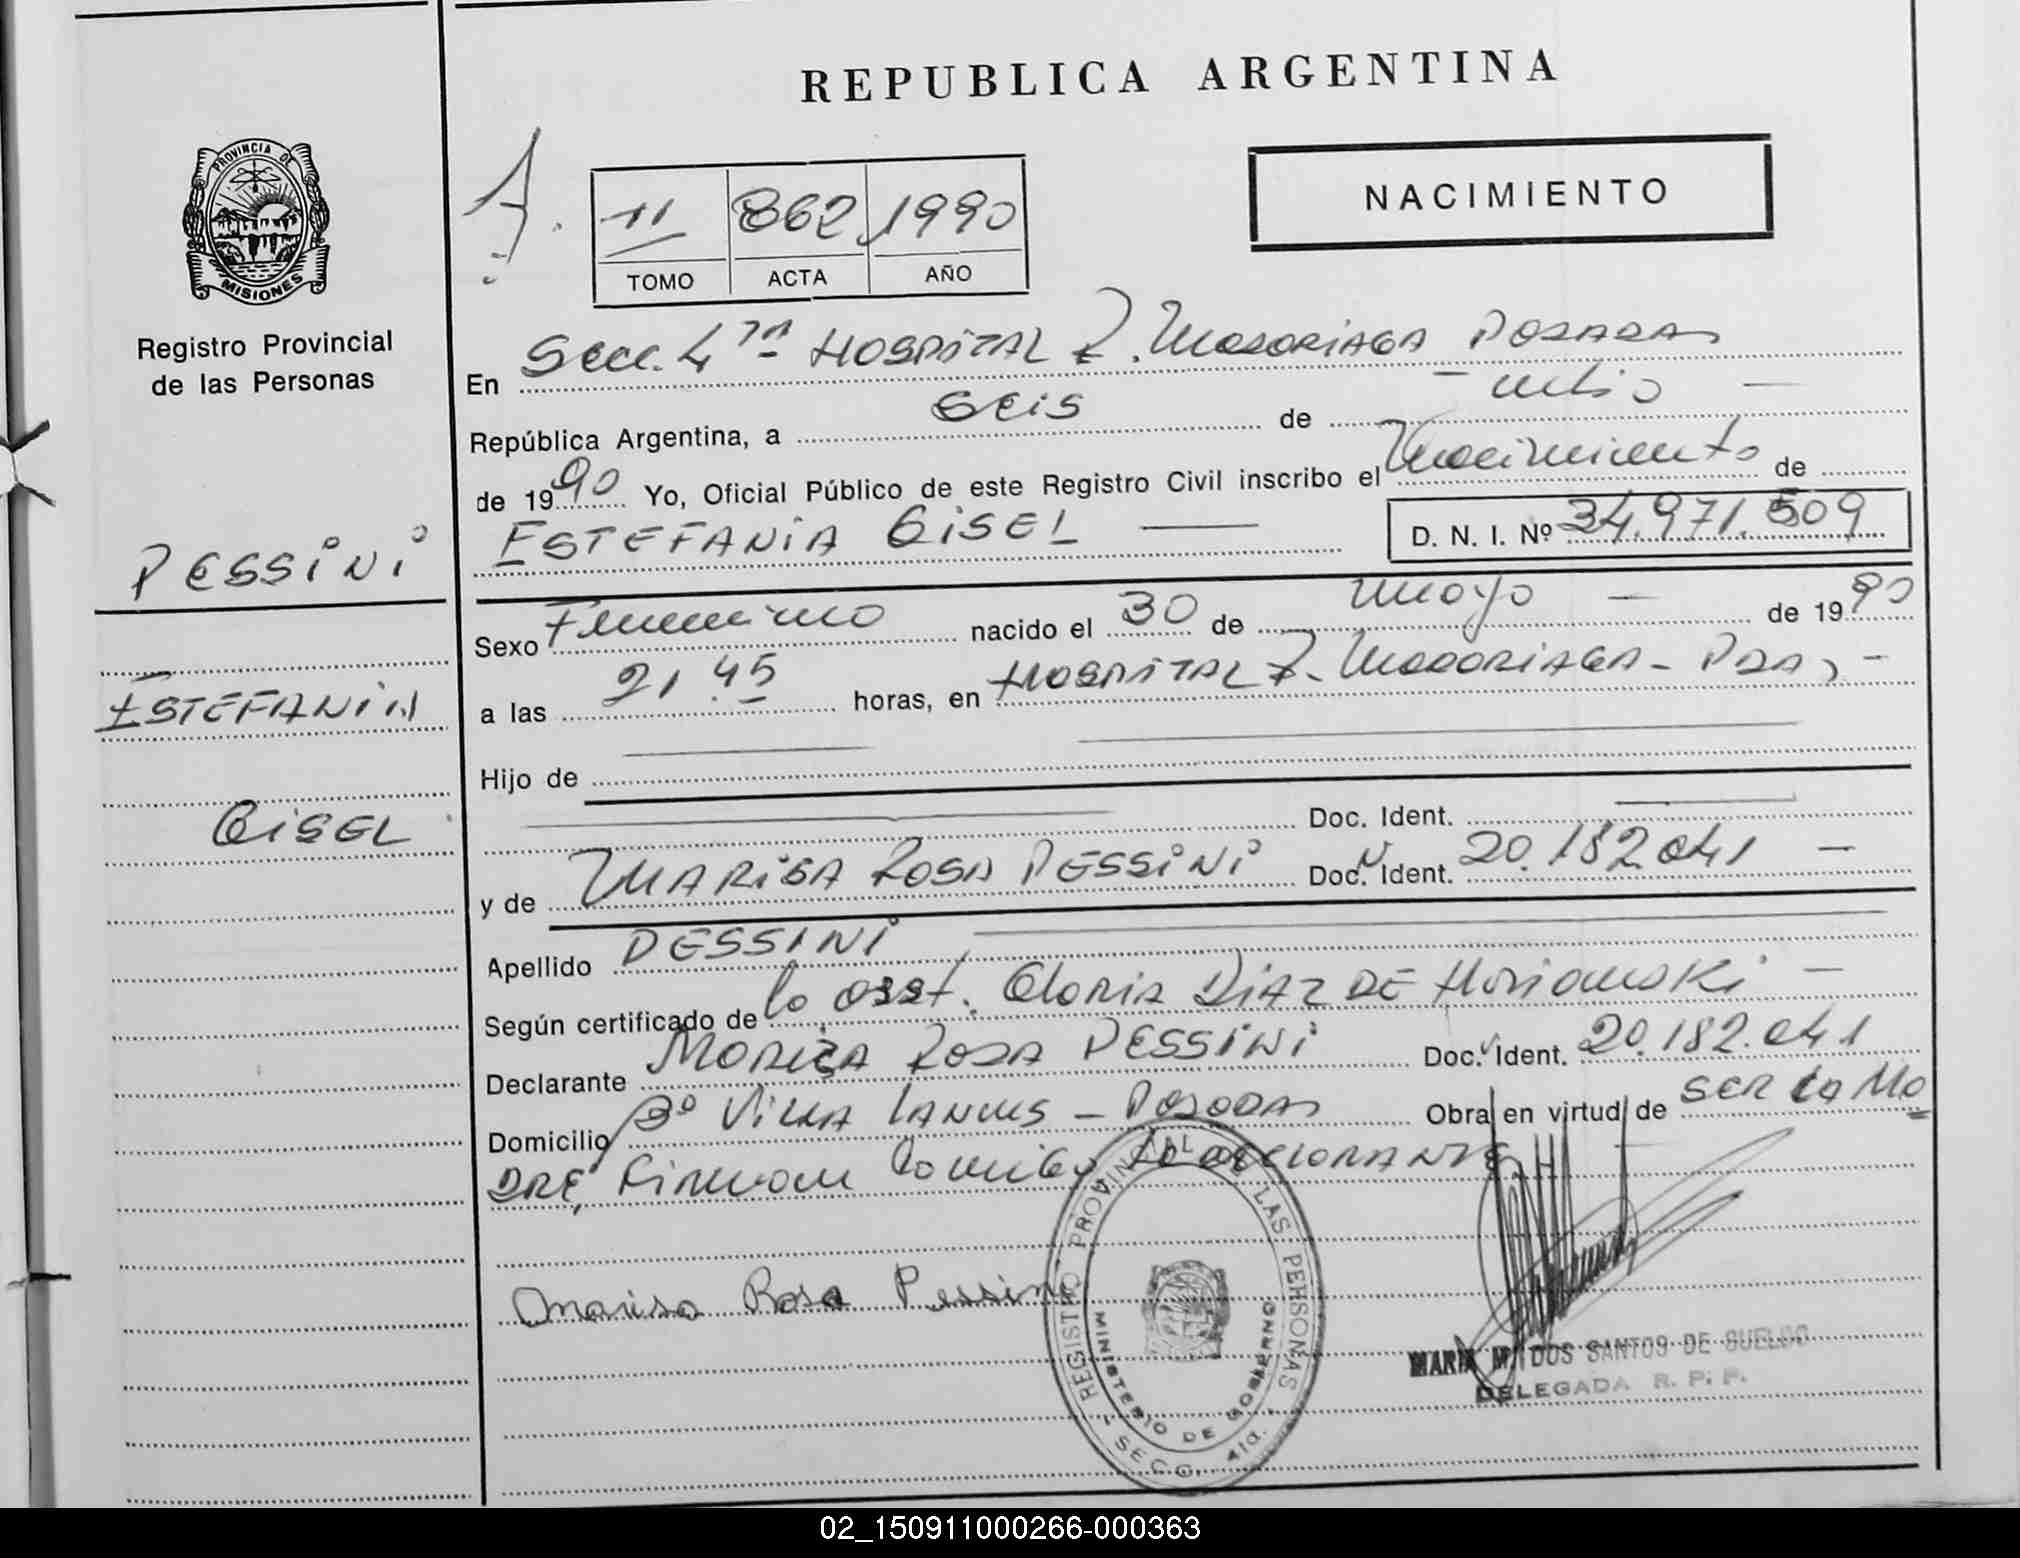 REPUBLICA ARGENTINA
PROVINCIA DE
MISIONES
Registro Provincial
de las Personas
II 862 1990
TOMO ACTA AÑO
NACIMIENTO
En Secc. 4ta HOSPITAL R. MADARIAGA POSADAS
República Argentina, a SEIS de Julio
de 1990 Yo, Oficial Público de este Registro Civil inscribo el Nacimiento de
ESTEFANIA GISEL D. N. I. Nº 34.971.509
PESSINI
ESTEFANIA
GISEL
Sexo Femenino nacido el 30 de mayo de 1990
a las 21,45 horas, en HOSPITAL R. MADARIAGA - PDAS,
Hijo de
Doc. Ident.
y de MARISA ROSA PESSINI Doc. Ident. 20.182.041
Apellido PESSINI
Según certificado de la obst. GLORIA DIAZ DE
Declarante MARISA ROSA PESSINI Doc. Ident. 20.182.041
Domicilio Bº VILLA LANUS - POSADAS Obra en virtud de SER LA MA
DRE, Firman la DECLARANTE
Marisa Rosa Pessini
REGISTRO PROVINCIAL LAS PERSONAS
MINISTERIO DE GOBIERNO
SECC. 4ta.
MARIA M. DOS SANTOS DE
DELEGADA R. P. P.
02_150911000266-000363